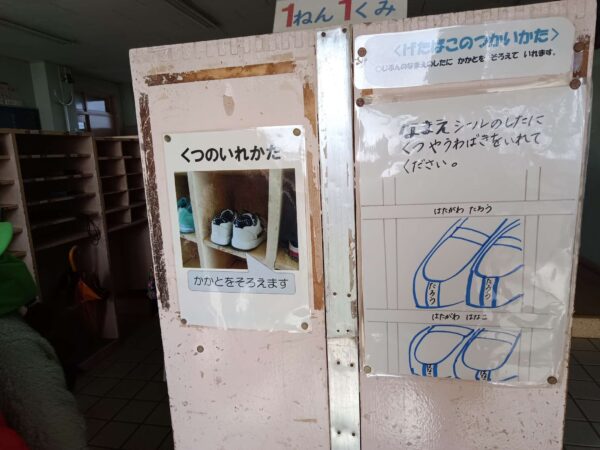 1ねん1くみ
くつのいれかた
かかとをそろえます
<げたばこのつかいかた>
○じぶんのなまえのしたに かかとを そろえて いれます。
なまえシールのしたに
くつ やうわばきをいれて
ください。
はたがわ たろう
たろう
たろう
はたがわ はなこ